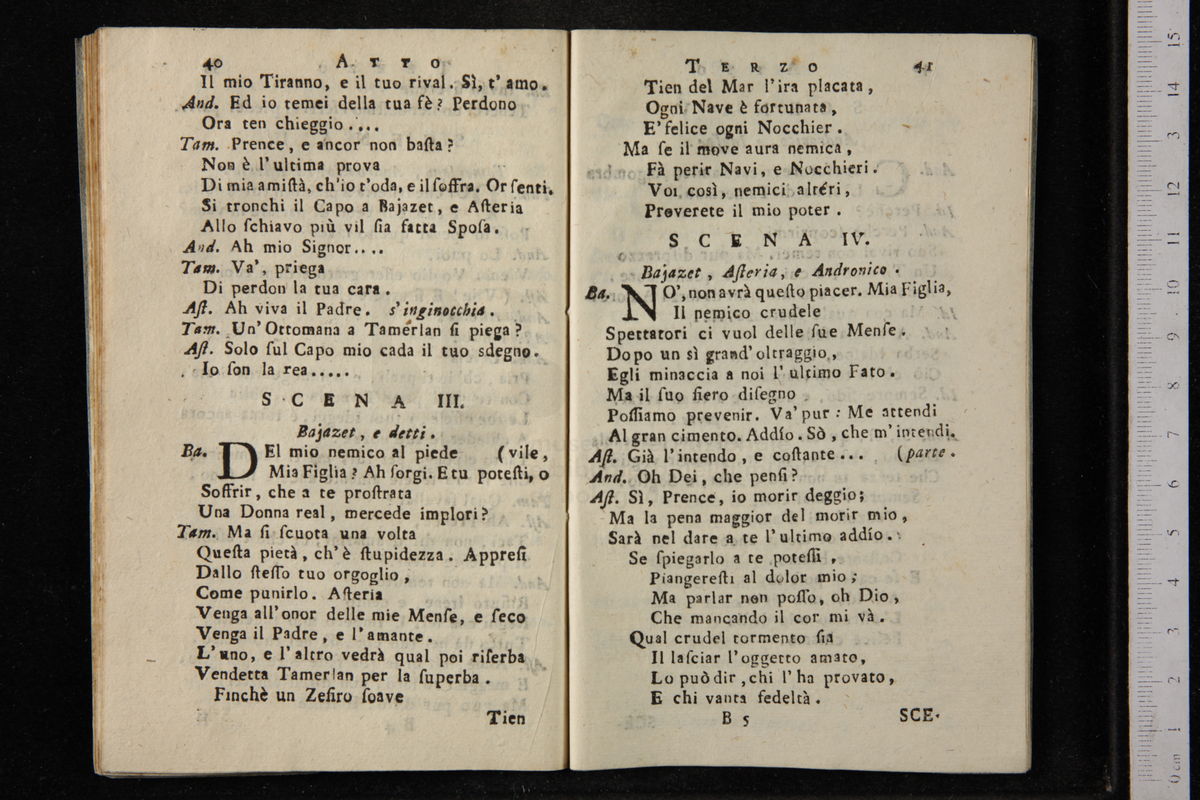 40 ATTO
Il mio Tiranno, e il tuo rival. Sì, t' amo.
And. Ed io temei della tua fè? Perdono
Ora ten chieggio....
Tam. Prence, e ancor non baſta?
Non è l'ultima prova
Di mia amiſtà, ch'io t'oda, e il ſoffra. Or ſenti.
Si tronchi il Capo a Bajazet, e Aſteria
Allo ſchiavo più vil ſia fatta Spoſa.
And. Ah mio Signor....
Tam. Va', priega
Di perdon la tua cara.
Aſt. Ah viva il Padre. s'inginocchia.
Tam. Un' Ottomana a Tamerlan ſi piega?
Aſt. Solo ſul Capo mio cada il tuo sdegno.
Io ſon la rea.....
SCENA III.
Bajazet, e detti.
Ba. DEl mio nemico al piede (vile,
Mia Figlia? Ah ſorgi. E tu poteſti, o
Soffrir, che a te proſtrata
Una Donna real, mercede implori?
Tam. Ma ſi ſcuota una volta
Queſta pietà, ch'è ſtupidezza. Appreſi
Dallo ſteſſo tuo orgoglio,
Come punirlo. Aſteria
Venga all'onor delle mie Menſe, e ſeco
Venga il Padre, e l'amante.
L'uno, e l'altro vedrà qual poi riſerba
Vendetta Tamerlan per la ſuperba.
Finchè un Zefiro ſoave
Tien
TERZO 41
Tien del Mar l'ira placata,
Ogni Nave è fortunata,
E' felice ogni Nocchier.
Ma ſe il move aura nemica,
Fà perir Navi, e Nocchieri.
Voi così, nemici altéri,
Proverete il mio poter.
SCENA IV.
Bajazet, Aſteria, e Andronico.
Ba. NO', non avrà queſto piacer. Mia Figlia,
Il nemico crudele
Spettatori ci vuol delle ſue Menſe.
Dopo un sì grand' oltraggio,
Egli minaccia a noi l'ultimo Fato.
Ma il ſuo fiero diſegno
Poſſiamo prevenir. Va' pur: Me attendi
Al gran cimento. Addío. Sò, che m'intendi.
Aſt. Già l'intendo, e coſtante... (parte.
And. Oh Dei, che penſi?
Aſt. Sì, Prence, io morir deggio;
Ma la pena maggior del morir mio,
Sarà nel dare a te l'ultimo addío.
Se ſpiegarlo a te poteſſi,
Piangereſti al dolor mio;
Ma parlar non poſſo, oh Dio,
Che mancando il cor mi và.
Qual crudel tormento ſia
Il laſciar l'oggetto amato,
Lo può dir, chi l'ha provato,
E chi vanta fedeltà.
B 5 SCE-